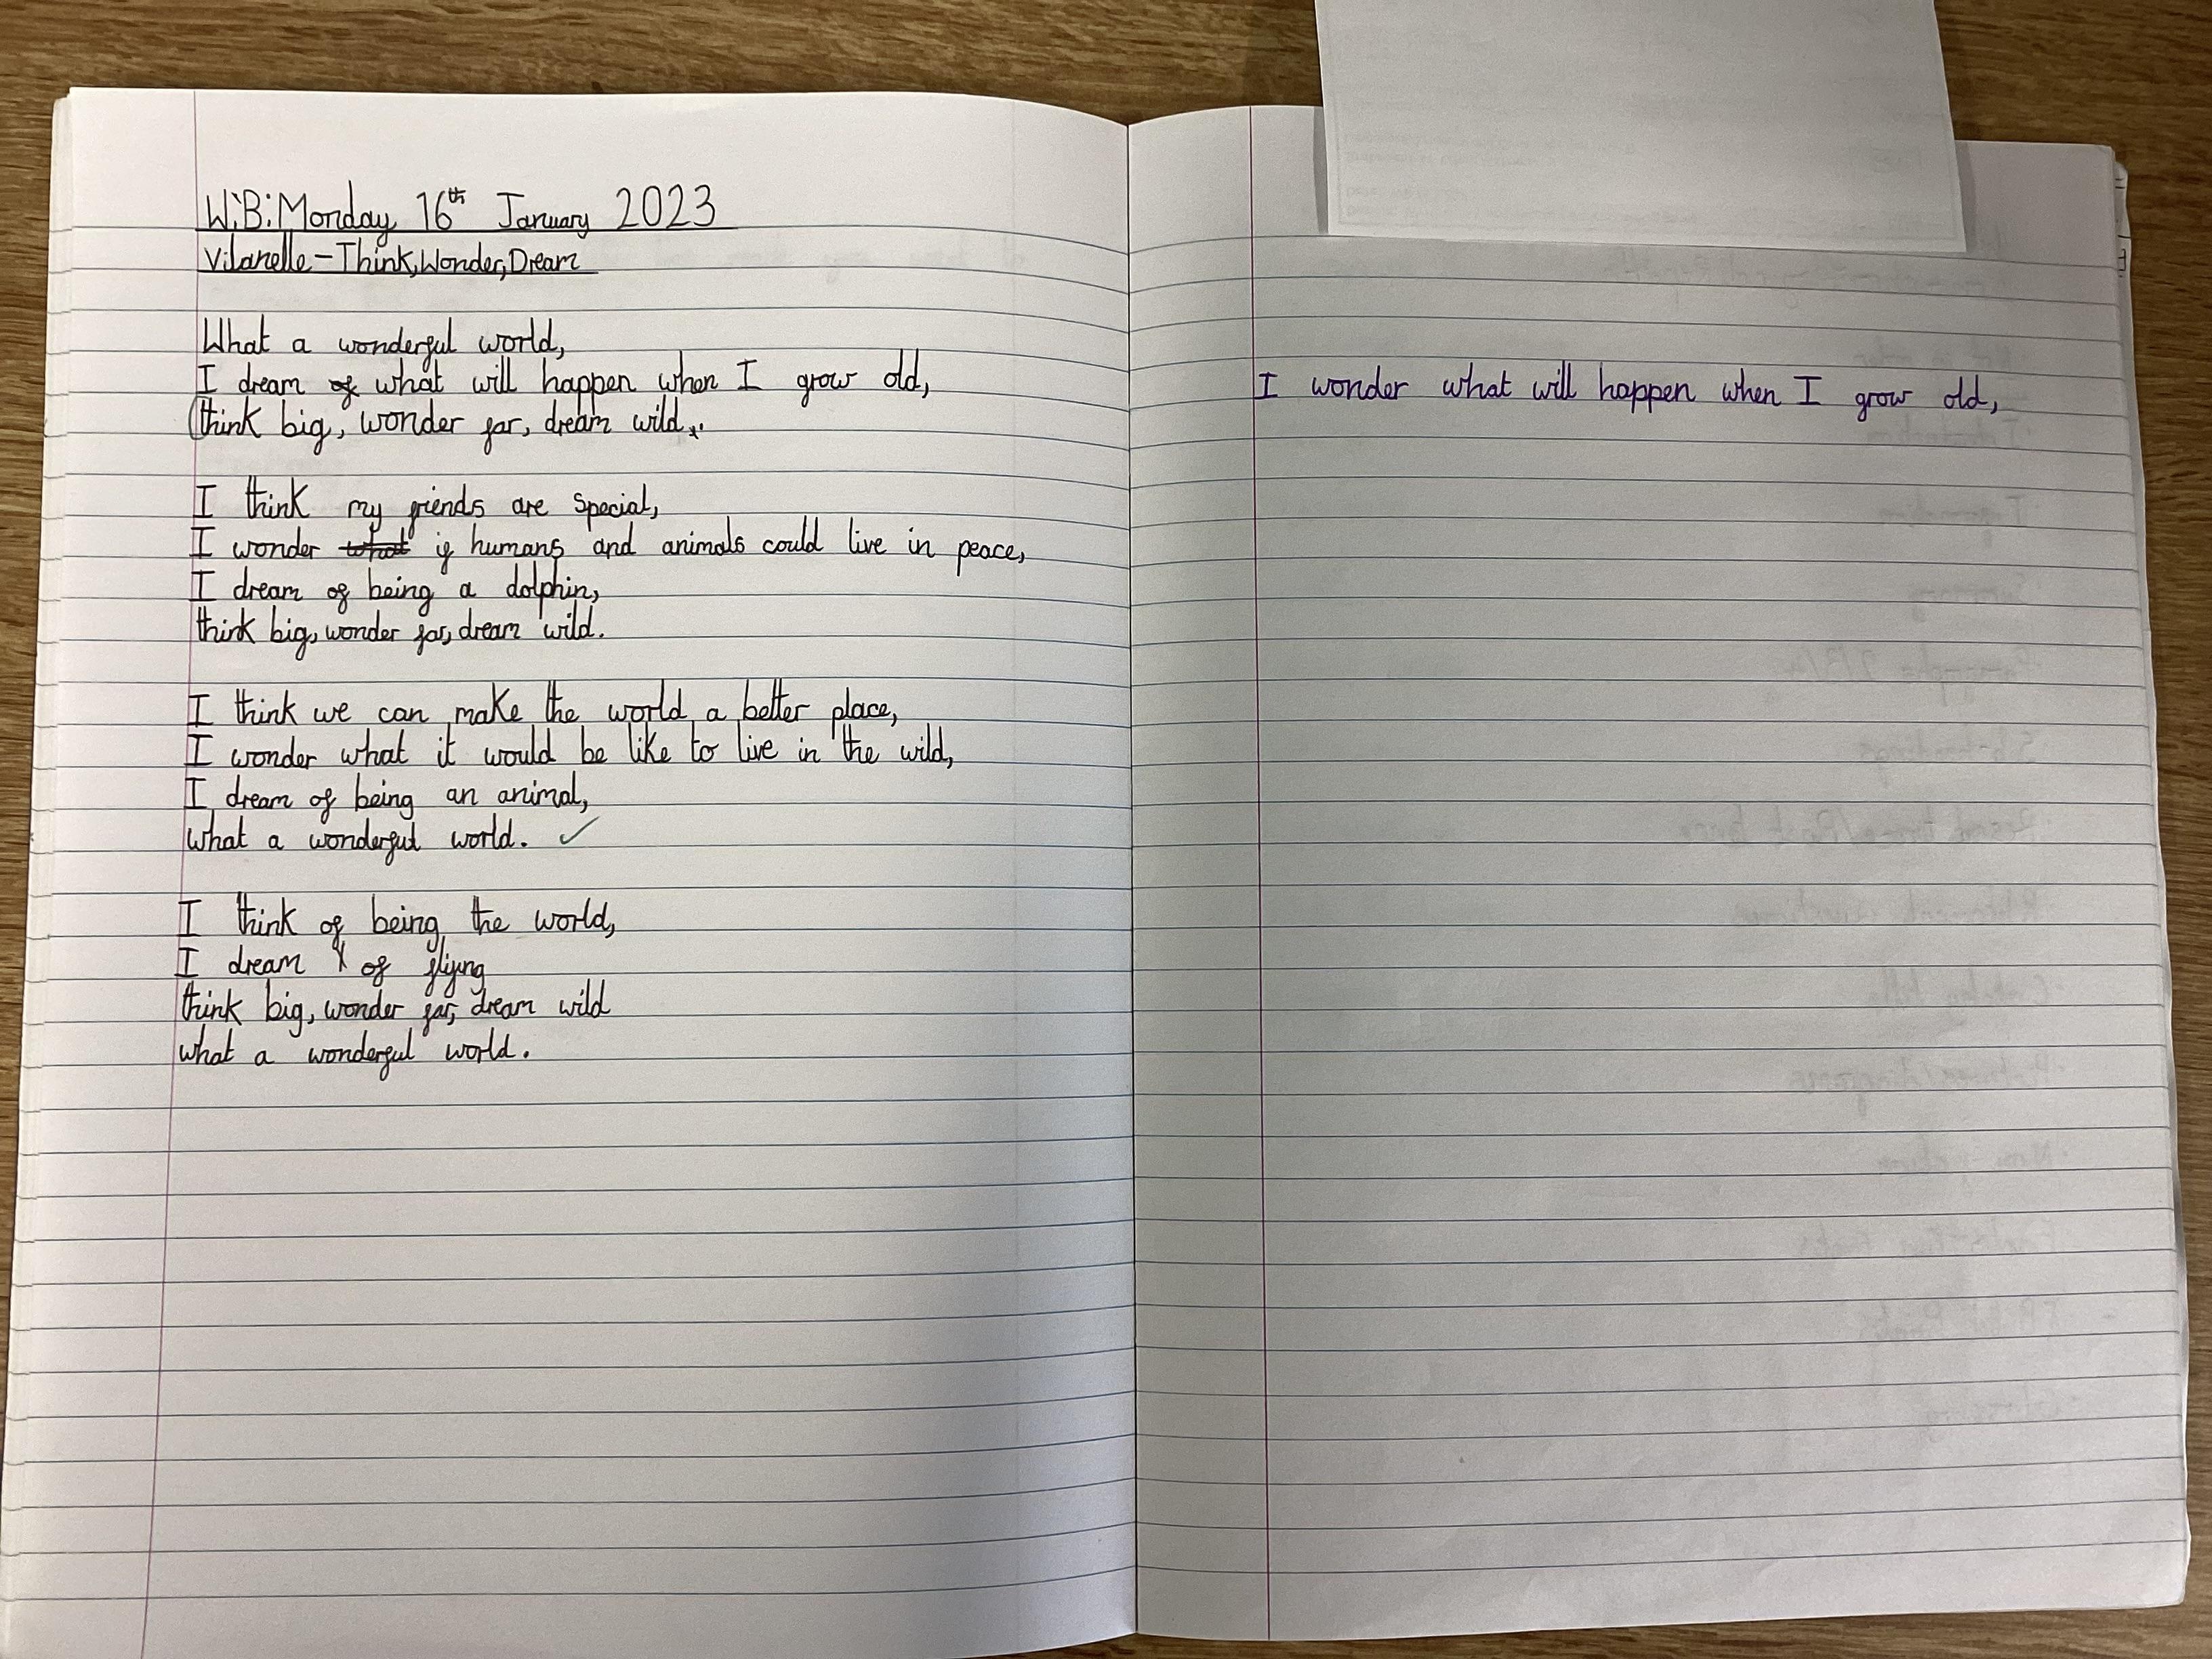 W.B: Monday 16th January 2023
Vilanelle - Think, Wonder, Dream
What a wonderful world,
I dream of what will happen when I grow old,
think big, wonder far, dream wild.
I think my friends are special,
I wonder what if humans and animals could live in peace,
I dream of being a dolphin,
think big, wonder far, dream wild.
I think we can make the world a better place,
I wonder what it would be like to live in the wild,
I dream of being an animal,
what a wonderful world.
I think of being the world,
I dream of fliyng
think big, wonder far, dream wild
what a wonderful world.
I wonder what will happen when I grow old,